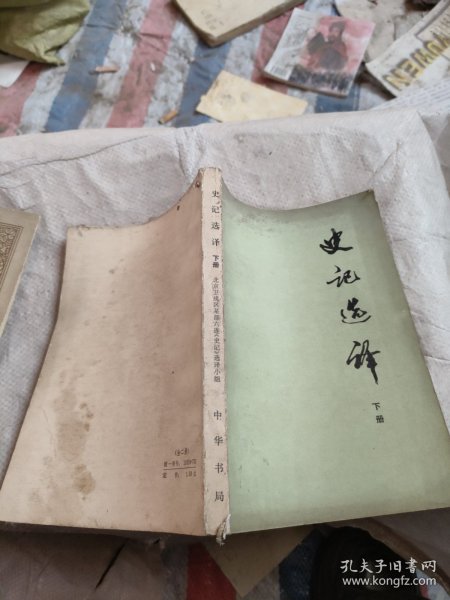 史记选译
下册
史记选译 下册 北京卫戍区某部六连《史记》选译小组 中华书局
(全二册)
孔夫子旧书网
www.kongfz.com